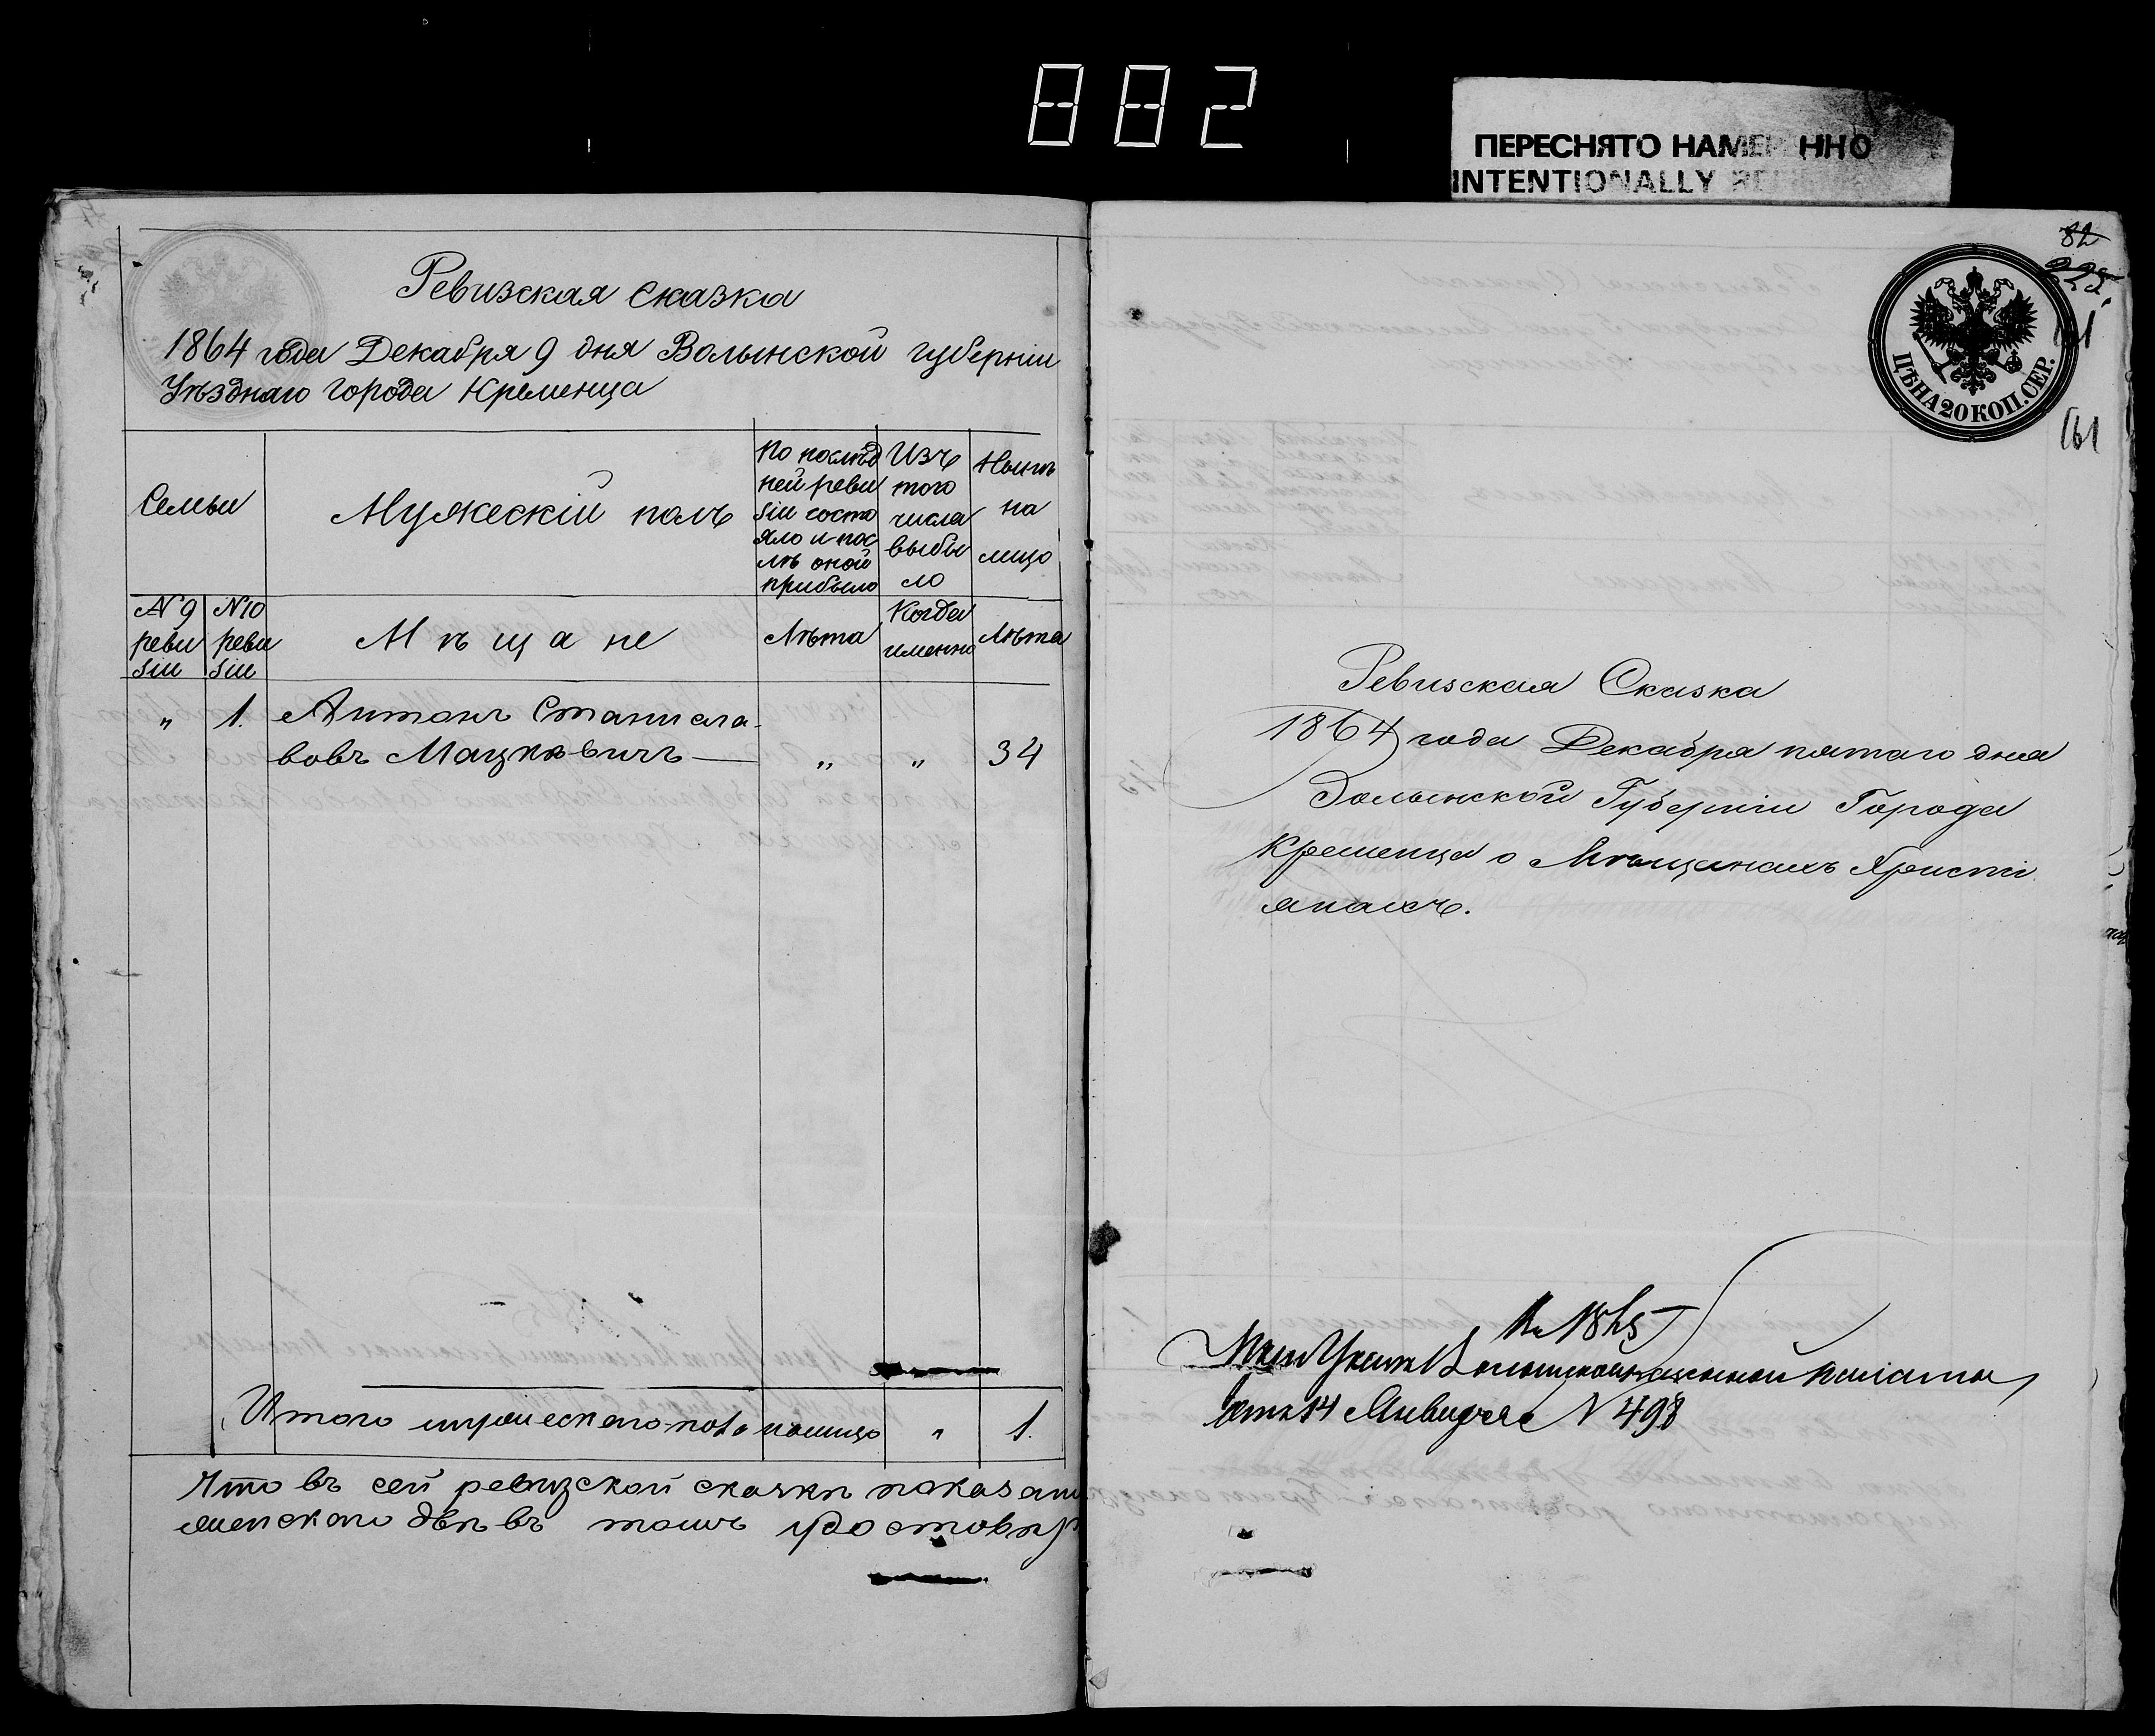 882
ПЕРЕСНЯТО НАМЕР ННО
INTENTIONALLY RE
Ревизская сказка
1864 года Декабря 9 дня Волынской губерніи
Уѣзднаго города Кременца
Семьи
Мужескій полъ
По послѣд
ней реви
зіи состо
яло и пос
лѣ оной
прибыло
Изъ
того
числа
выбы
ло
Нынѣ
на
лицо
№ 9
реви
зіи
№ 10
реви
зіи
Мѣщане
Лѣта
Когда
именно
Лѣта
„ 1. Антонъ Станисла-
вовъ Мацкѣвичъ — „ „ 34
Итого мужескаго пола налицо „ 1.
Что въ сей ревизской сказкѣ показан
женскаго двѣ въ томъ удостовѣр
82
225.
61
ЦѢНА 20 КОП. СЕР.
Ревизская Сказка
1864 года Декабря пятаго дня
Волынской Губерніи Города
Кременца о Мѣщанахъ Христі
янахъ.
1865
При Указѣ Волынской Казенной Палаты
отъ 14 Января № 498